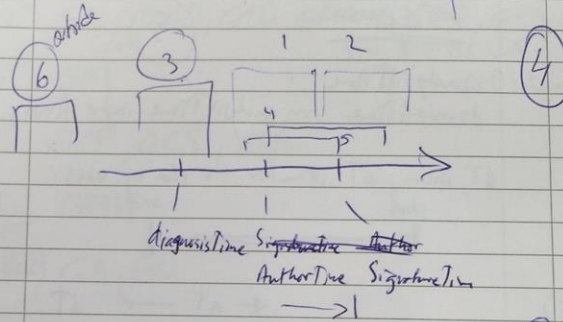 outside
6
3
1 2
4
4
5
diagnosisTime SignatureTime Author
AuthorTime SignatureTim